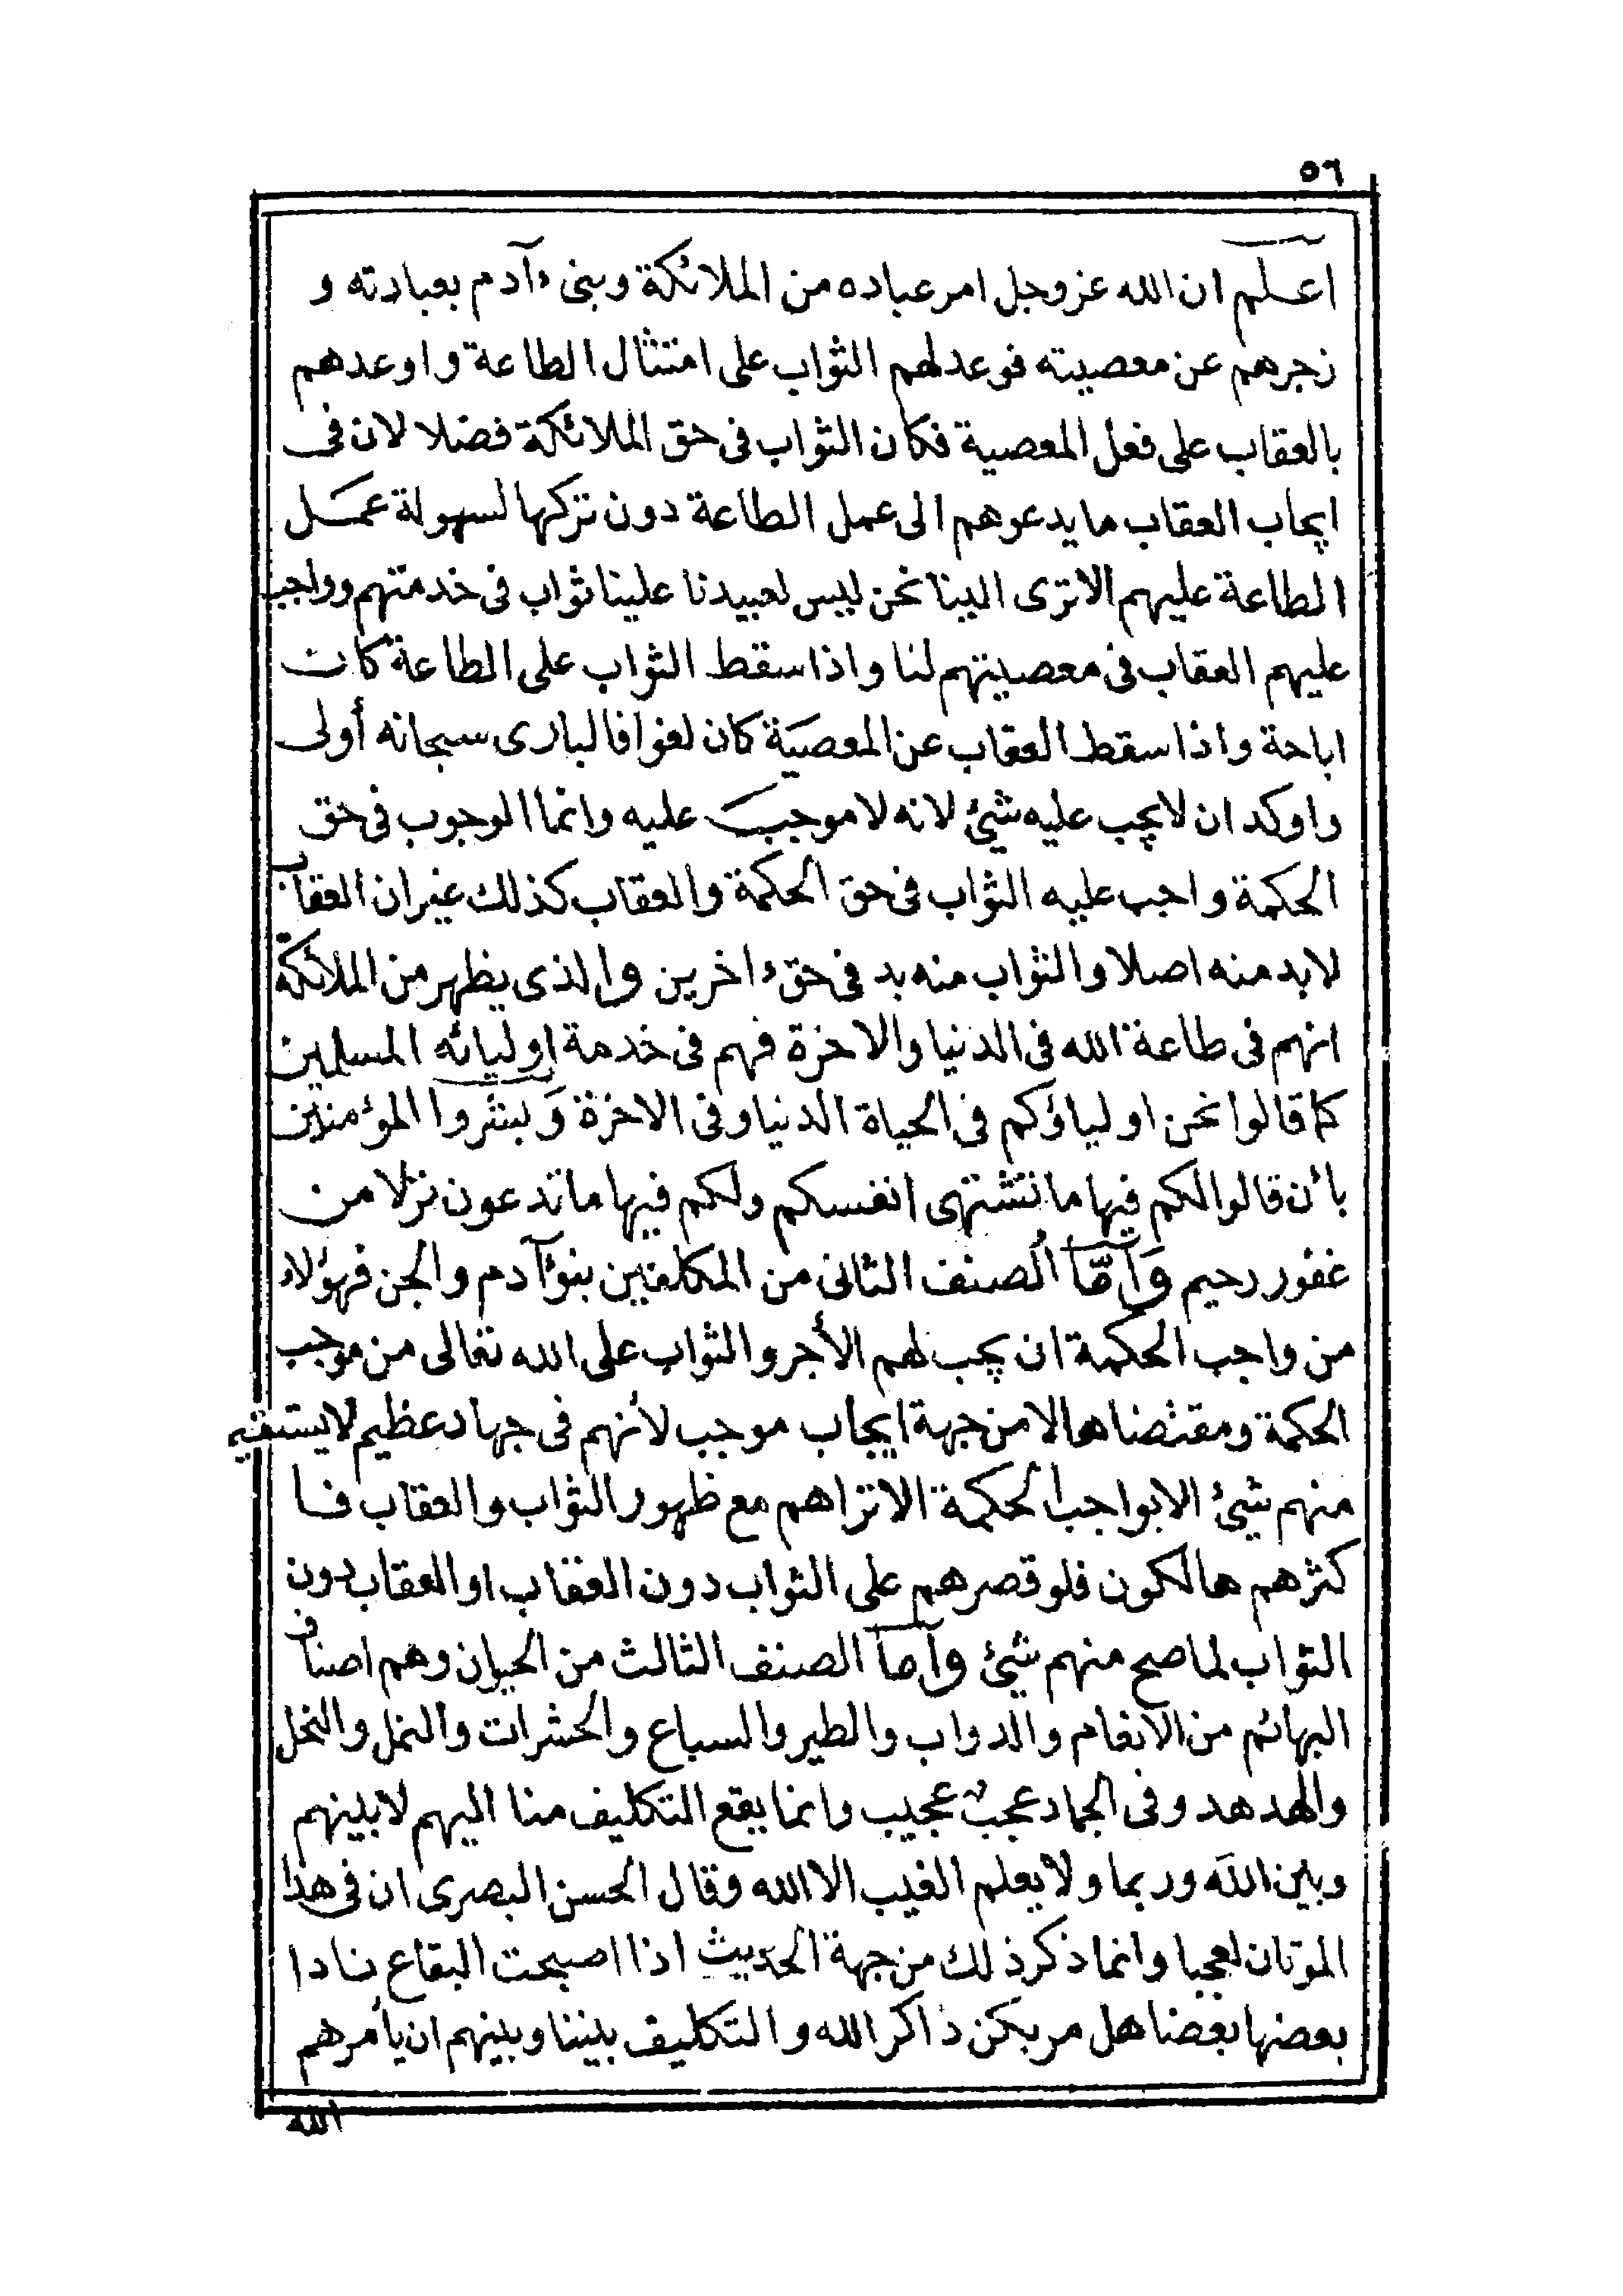 ٥٦
اعلم ان الله عز وجل امر عباده من الملائكة وبنى ءآدم بعبادته و
زجرهم عن معصيته فوعد لهم الثواب على امتثال الطاعة واوعدهم
بالعقاب على فعل المعصية فكان الثواب فى حق الملائكة فضلا لان فى
ايجاب العقاب ما يدعوهم الى عمل الطاعة دون تركها لسهولة عمل
الطاعة عليهم الا ترى الينا نحن ليس لعبيدنا علينا ثواب فى خدمتهم وواجب
عليهم العقاب فى معصيتهم لنا واذا سقط الثواب على الطاعة كان
اباحة واذا سقط العقاب عن المعصية كان لغوا فالبارى سبحانه أولى
واوكد ان لا يجب عليه شيئ لانه لا موجب عليه وانما الوجوب فى حق
الحكمة واجب عليه الثواب فى حق الحكمة والعقاب كذلك غير ان العقاب
لا بد منه اصلا والثواب منه بد فى حق ءاخرين والذى يظهر من الملائكة
انهم فى طاعة الله فى الدنيا والاخرة فهم فى خدمة اوليائه المسلمين
كما قالوا نحن اولياؤكم فى الحياة الدنيا وفى الاخرة وبشروا المؤمنين
بأن قالوا لكم فيها ما تشتهى انفسكم ولكم فيها ما تدعون نزلا من
غفور رحيم وَأمّا الصنف الثانى من المكلفين بنؤآدم والجن فهؤلاء
من واجب الحكمة ان يجب لهم الأجر والثواب على الله تعالى من موجب
الحكمة ومقتضاها لا من جهة ايجاب موجب لأنهم فى جهاد عظيم لا يستقيم
منهم شيئ الا بواجب الحكمة الا تراهم مع ظهور الثواب والعقاب فا
كثرهم هالكون فلو قصرهم على الثواب دون العقاب او العقاب دون
الثواب لما صح منهم شيئ وأما الصنف الثالث من الحيوان وهم اصناف
البهائم من الانعام والدواب والطير والسباع والحشرات والنمل والنحل
والهدهد وفى الجماد عجبٌ عجيب وانما يقع التكليف منا اليهم لا بينهم
وبين الله وربما ولا يعلم الغيب الا الله وقال الحسن البصرى ان فى هذا
الموتان لعجبا وانما ذكر ذلك من جهة الحديث اذا اصبحت البقاع نادا
بعضها بعضا هل مر بكن ذاكر الله والتكليف بيننا وبينهم ان يأمرهم
الله